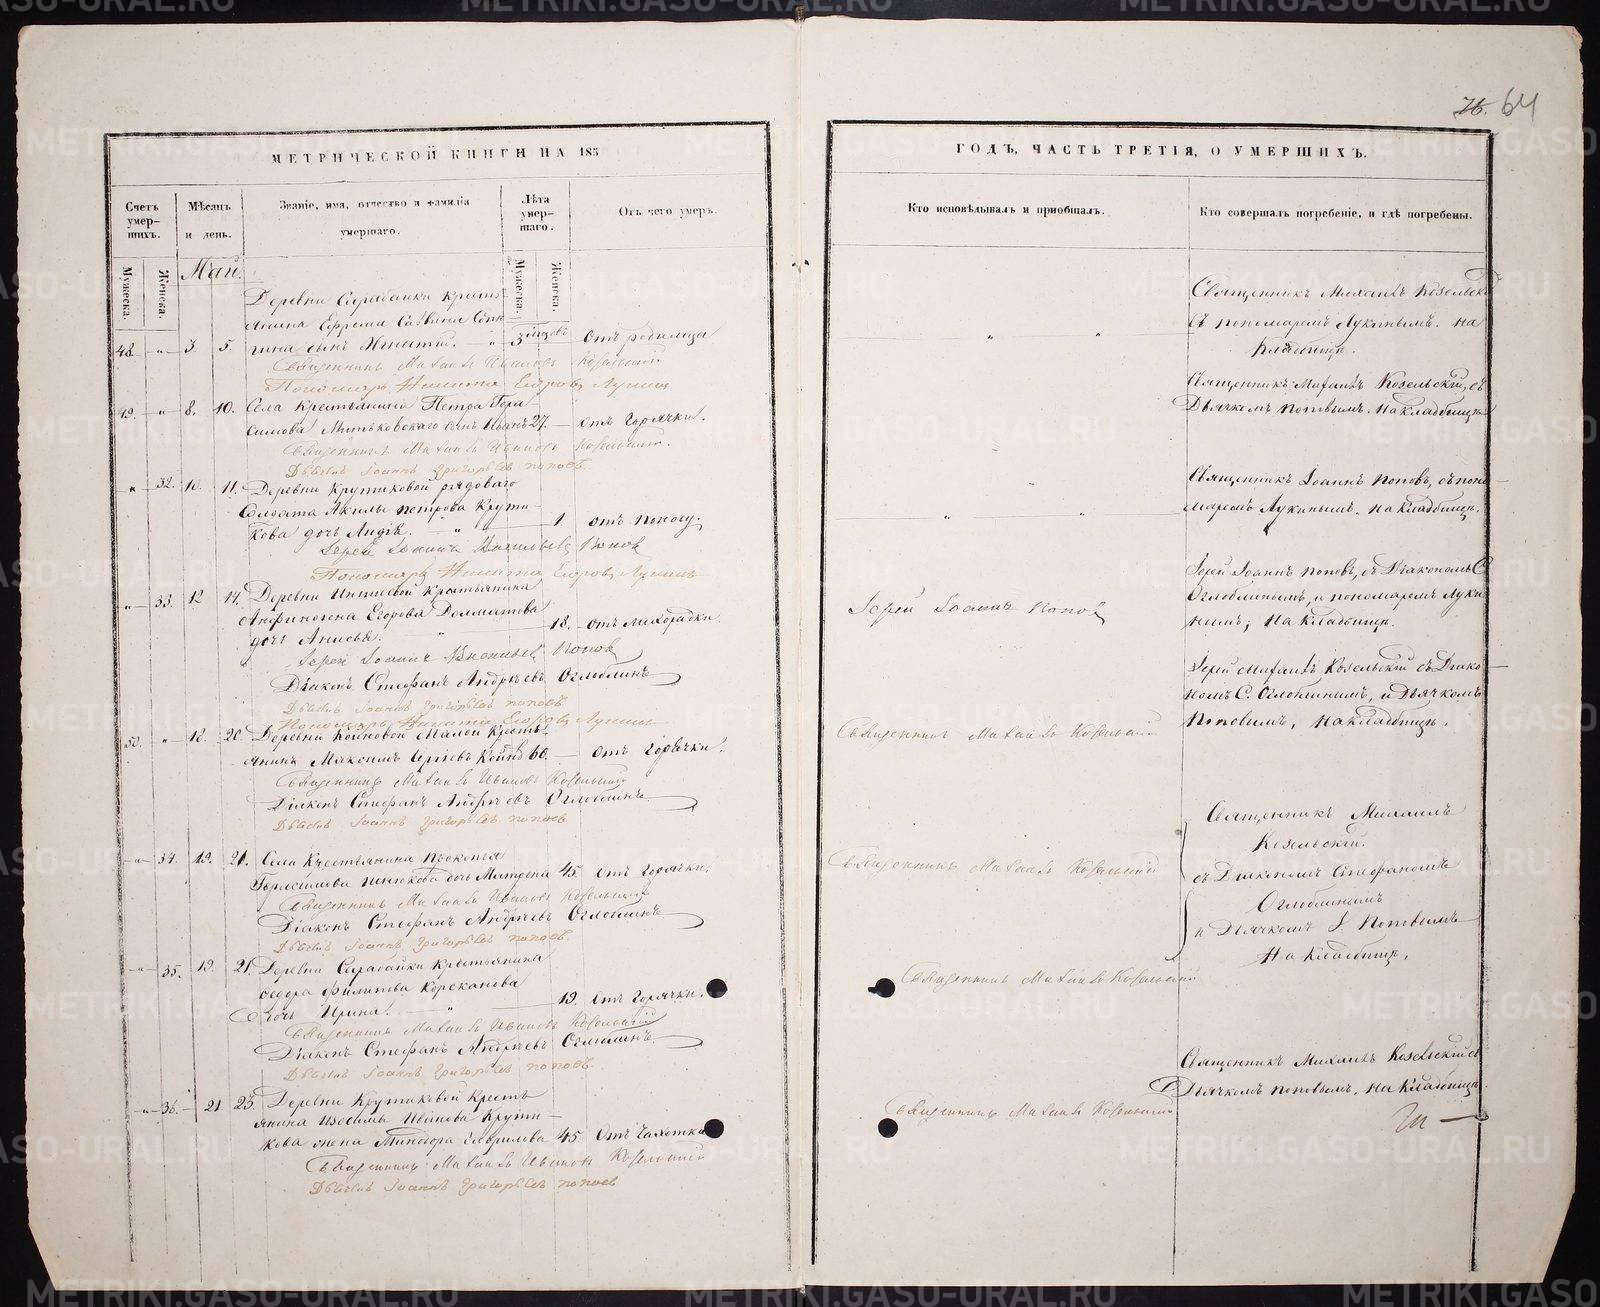 76. 64
МЕТРИЧЕСКОЙ КНИГИ НА 185
ГОДЪ, ЧАСТЬ ТРЕТІЯ, О УМЕРШИХЪ.
Счетъ умер-шихъ.
Мѣсяцъ и день.
Званіе, имя, отчество и фамилія умершаго.
Лѣта умер-шаго.
Отъ чего умеръ.
Кто исповѣдывалъ и пріобщалъ.
Кто совершалъ погребеніе, и гдѣ погребены.
Мужеска.
Женска.
Май.
Мужеска.
Женска.
Деревни Сарабайки кресть-
янина Ефрема Саввина
48. „ 3. 5. сынъ Игнатій. „ 3 отъ родимца
Священникъ Михаилъ Ивановъ Козельскій
Пономарь Никита Егоровъ Лукинъ
Священникъ Михаилъ Козельскій
съ пономаремъ Лукинымъ. на
Кладбищѣ.
49. „ 8. 10. Села Крестьянина Петра Гера-
симова Митьковскаго сынъ Иванъ 27. — отъ Горячки.
Священникъ Михаилъ Ивановъ Козельскій.
Дьячекъ Іоаннъ Григорьевъ Поповъ.
Священникъ Михаилъ Козельскій, съ
Дьячкомъ Поповымъ. На кладбищѣ
„ 32. 10. 11. Деревни Крутиковой рядоваго
Солдата Акилы Петрова Крути-
кова дочь Лидія. „ 1 отъ поносу.
Іерей Іоаннъ Васильевъ Поповъ
Пономарь Никита Егоровъ Лукинъ
Священникъ Іоаннъ Поповъ, съ поно-
маремъ Лукинымъ. На Кладбищѣ.
„ 33. 12 14. Деревни Крестьянина
Анфиногена Егорова Долматова
дочь Анисья. „ 18. отъ лихорадки.
Іерей Іоаннъ Васильевъ Поповъ
Діаконъ Стефанъ Андреевъ Оглоблинъ
Дьячекъ Іоаннъ Григорьевъ Поповъ
Пономарь Никита Егоровъ Лукинъ
Іерей Іоаннъ Поповъ
Іерей Іоаннъ Поповъ, съ Діакономъ С.
Оглоблинымъ, и пономаремъ Луки-
нымъ, На Кладбищѣ.
50. „ 18. 20. Деревни Койновой Малой Кресть-
янинъ Максимъ Сергіевъ Койновъ 60. — отъ горячки.
Священникъ Михаилъ Ивановъ Козельскій
Діаконъ Стефанъ Андреевъ Оглоблинъ
Дьячекъ Іоаннъ Григорьевъ Поповъ
Священникъ Михаилъ Козельскій
Іерей Михаилъ Козельскій съ Діако-
номъ С. Оглоблинымъ, и Дьячкомъ
Поповымъ, На кладбищѣ.
„ 34. 19. 21. Села Крестьянина Прокопья
Герасимова дочь Матрена 45. отъ горячки.
Священникъ Михаилъ Ивановъ Козельскій
Діаконъ Стефанъ Андреевъ Оглоблинъ
Дьячекъ Іоаннъ Григорьевъ Поповъ.
Священникъ Михаилъ Козельскій
Священникъ Михаилъ
Козельскій.
съ Діакономъ Стефаномъ
Оглоблинымъ
и Дьячкомъ І. Поповымъ
На Кладбищѣ.
„ 35. 19. 21. Деревни Сарабайки Крестьянина
Федора Филипова Корсканова
дочь Ирина. „ 19. отъ горячки.
Священникъ Михаилъ Ивановъ Козельскій
Діаконъ Стефанъ Андреевъ Оглоблинъ
Дьячекъ Іоаннъ Григорьевъ Поповъ.
Священникъ Михаилъ Козельскій
„ 36. 21 23. Деревни Крутиковой Кресть-
янина Изосима Иванова Крути-
кова жена Минодора Гаврилова 45 отъ чахотки
Священникъ Михаилъ Ивановъ Козельскій
Дьячекъ Іоаннъ Григорьевъ Поповъ
Священникъ Михаилъ Козельскій
Священникъ Михаилъ Козельскій съ
Дьячкомъ Поповымъ. На Кладбищѣ.
METRIKI.GASO-URAL.RU